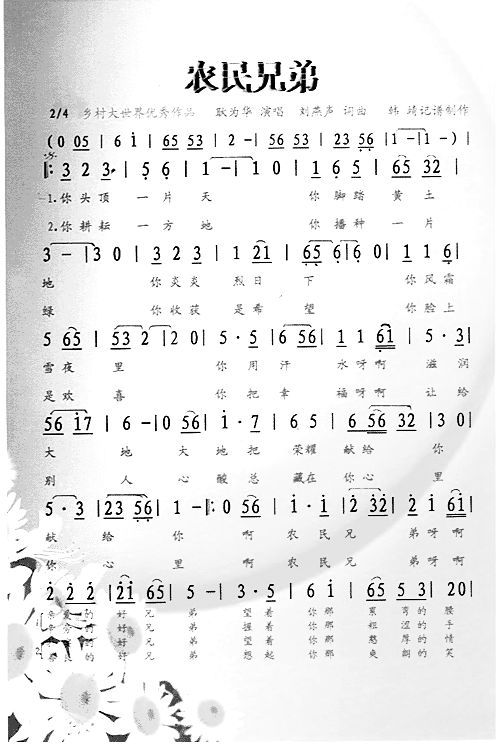 农民兄弟
2/4 乡村大世界优秀作品 耿为华 演唱 刘燕声 词曲 韩 靖记谱制作
(0 05 | 6 i | 65 53 | 2 - | 56 53 | 23 56 | 1 - | 1 0) |
|: 3 2 3 · | 5 6 | 1 - | 1 - | 3 2 3 | 65 32 |
1.你头顶 一片 天 你脚踏 黄土
2.你耕耘 一方 地 你播种 一片
3 - | 3 0 | 3 2 3 | 1 21 | 65 6 | 6 0 | 1 1 6 |
地 你炎炎 烈日 下 你风霜
绿 你收获 是希 望 你脸上
5 65 | 53 2 | 2 0 | 5 · 5 | 6 56 | 1 1 61 | 5 · 3 |
雪夜 里 你用汗 水呀啊 滋润
是欢 喜 你把幸 福呀啊 让给
56 i7 | 6 - | 0 56 | i · 7 | 6 5 | 6 56 32 | 3 0 |
大 地 大地把 荣耀 献给 你
别 人 心酸总 藏在 你心 里
5 · 3 | 23 56 | 1 - :| 0 56 | i · i | 2 32 | i 2 61 |
献 给 你 啊 农民兄 弟呀啊
你 心 里 啊 农民兄 弟呀啊
2 2 2 2 | 2 · 6 | 5 - | 5 · 3 | 5 6 i | 65 5 3 | 20 |
的 好兄 弟 望着 你那 累弯的 腰
的 好兄 弟 握着 你那 粗涩的 手
的 好兄 弟 望着 你那 憨厚的 情
的 好兄 弟 想起 你那 爽朗的 笑